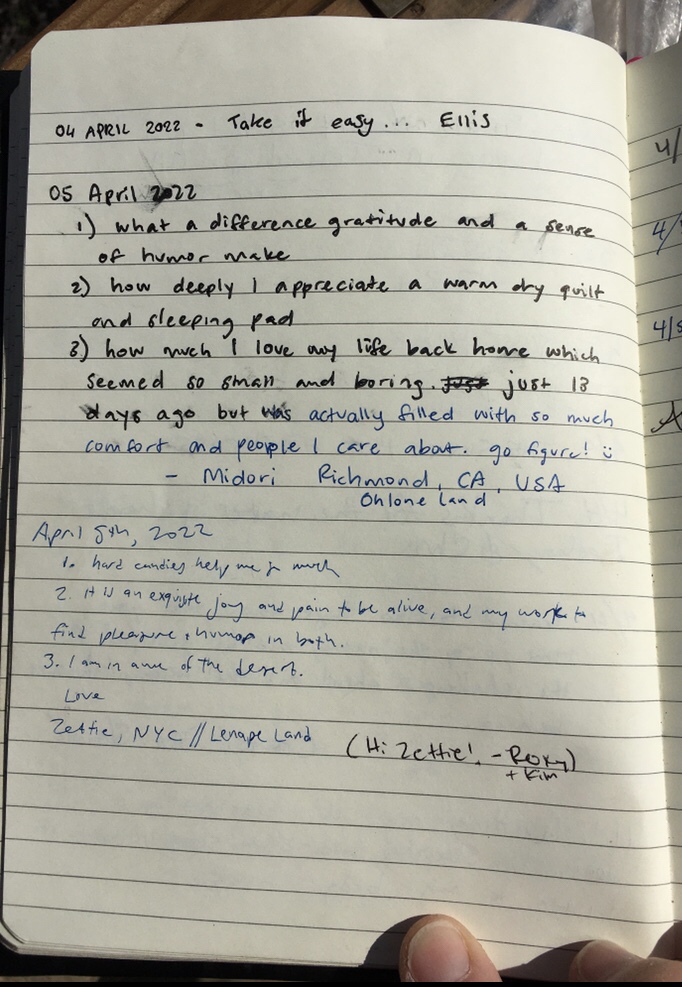 04 APRIL 2022 - Take it easy... Ellis
05 April 2022
1) what a difference gratitude and a sense
of humor make
2) how deeply I appreciate a warm dry quilt
and sleeping pad
3) how much I love my life back home which
seemed so small and boring. just just 13
days ago but was actually filled with so much
comfort and people I care about. go figure! ü
- Midori Richmond, CA, USA
Ohlone Land
April 5th, 2022
1. hard candies help me so much
2. it is an exquisite joy and pain to be alive, and my work to
find pleasure + humor in both.
3. I am in awe of the desert.
Love
Zettie, NYC // Lenape Land
(Hi Zettie! - Roxy)
+ Kim
4/
4/
4/5